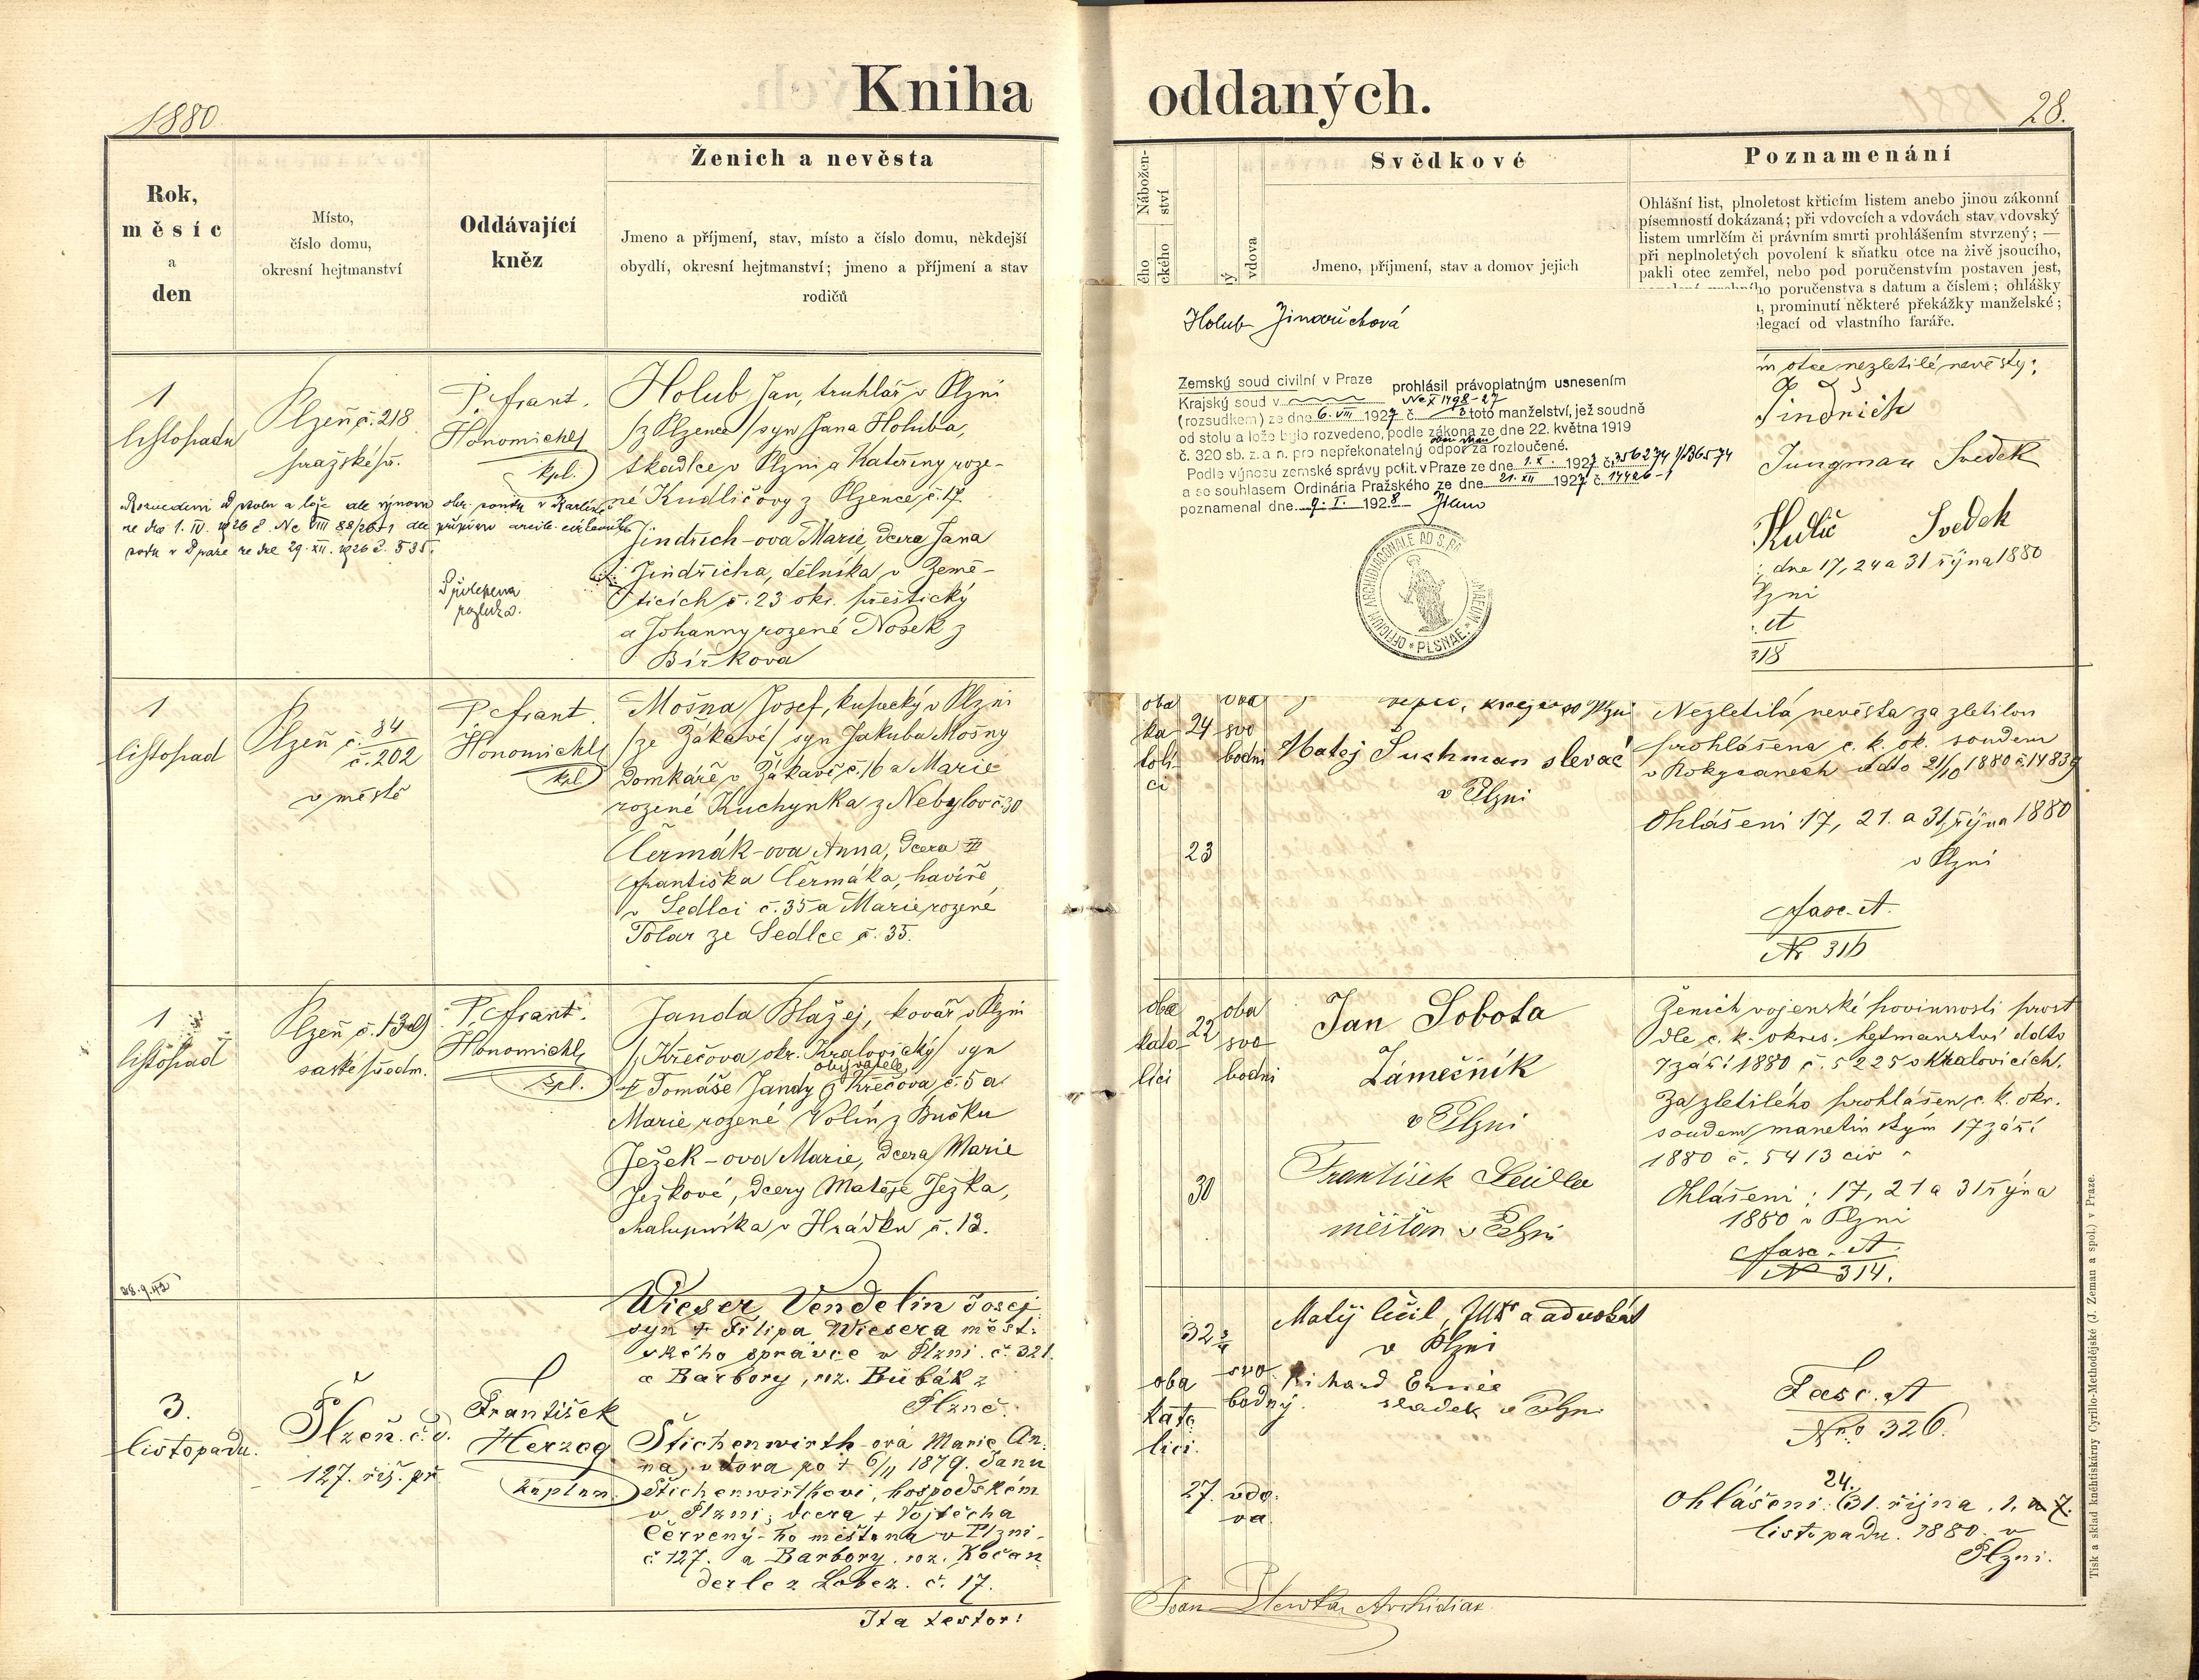 1880
Kniha oddaných.
28.
Rok,
měsíc
a
den
Místo,
číslo domu,
okresní hejtmanství
Oddávající
kněz
Ženich a nevěsta
Jmeno a příjmení, stav, místo a číslo domu, někdejší
obydlí, okresní hejtmanství; jmeno a příjmení a stav
rodičů
Nábožen-
ství
ého
ckého
ý
vdova
Svědkové
Jmeno, příjmení, stav a domov jejich
Poznamenání
Ohlášní list, plnoletost křticím listem anebo jinou zákonní
písemností dokázaná; při vdovcích a vdovách stav vdovský
listem umrlčím či právním smrti prohlášením stvrzený; —
při neplnoletých povolení k sňatku otce na živě jsoucího,
pakli otec zemřel, nebo pod poručenstvím postaven jest,
ho poručenstva s datum a číslem; ohlášky
, prominutí některé překážky manželské;
legací od vlastního faráře.
1
listopadu
Plzeň č. 218
pražské př.
P. Frant.
Honomichl
kpl.
Holub Jan, truhlář v Plzni
/z Plzence/ syn Jana Holuba,
tkadlce v Plzni a Kateřiny roze-
né Kudličovy z Plzence č. 17
Jindřich-ova Marie, dcera Jana
Jindřicha, dělníka v Země-
ticích č. 23 okr. přeštický
a Johanny rozené Nosek z
Bířkova
Rozvedeni od stolu a lože dle výnosu okr. soudu v Karlíně
ze dne 1. IV. 1926 č. Nc VIII 88/26-1 dle přípisu arcib. církevního
soudu v Praze ze dne 29. XII. 1926 č. 535.
Přiložena
rozluka.
Holub Jindřichová
Zemský soud civilní v Praze prohlásil právoplatným usnesením
Krajský soud v Nc X 1498-27
(rozsudkem) ze dne 6. VII 1927 č. 2 toto manželství, jež soudně
od stolu a lože bylo rozvedeno, podle zákona ze dne 22. května 1919
č. 320 sb. z. a n. pro nepřekonatelný odpor za rozloučené.
Podle výnosu zemské správy polit. v Praze ze dne 1. X. 1927 č. 356274
a se souhlasem Ordinária Pražského ze dne 21. XII 1927 č. 14426-1
poznamenal dne 9. I. 1928
OFFICIUM ARCHIDIACONALE AD S.
PLSNAE
m otce nezletilé nevěsty:
Jindřich
Jungman Svedek
Kulič Svedek
; dne 17, 24 a 31 října 1880
lzni
. A
318
1
listopad
Plzeň č. 84
č. 202
v městě
P. Frant.
Honomichl
kpl
Mošna Josef, kupecký v Plzni
/ze Žákavé/ syn Jakuba Mošny
domkáře v Žákavé č. 16 a Marie
rozené Kuchynka z Nebylov č. 30
Čermák-ova Anna, dcera
Františka Čermáka, havíře
v Sedlci č. 35 a Marie rozené
Tolar ze Sedlce č. 35.
oba
ka
toli-
ci
24
23
oba
svo
bodni
krejčí v Plzni
Matej Suchman slevač
v Plzni
Nezletilá nevěsta za zletilou
prohlášena c. k. ok. soudem
v Rokycanech ddto 21/10 1880 č. 14839
Ohlášeni 17, 21. a 31, října 1880
v Plzni
Fasc. A.
Nr 316
1
listopad
Plzeň č. 139
saské předm.
P. Frant.
Honomichl
kpl.
Janda Blažej, kovář v Plzni
/Křečova, okr. Kralovický/ syn
† Tomáše Jandy obyvatele z Křečova č. 5 a
Marie rozené Volín z Bučku
Ježek-ova Marie, dcera Marie
Ježkové, dcery Matěje Ježka,
chalupníka v Hrádku č. 13.
oba
kato-
líci
22
30
oba
svo
bodni
Jan Sobota
Zámečník
v Plzni
František Seidler
měštan v Plzni
Ženich vojenské povinnosti prost
dle c. k. okres. hejtmanství ddto
7 září 1880 č. 5225 v Kralovicích.
Za zletilého prohlášen c. k. okr.
soudem manetínským 17 září
1880 č. 5413 civ
Ohlášeni: 17, 21 a 31 října
1880 v Plzni
Fasc. A.
N 314.
28.9.42
3.
listopadu.
Plzeň. č. d.
127. říš. př
František
Herzog
kaplan.
Wieser Vendelin Josef
syn † Filipa Wiesera měst-
ského správce v Plzni. č. 321.
a Barbory, roz. Bubák z
Plzně.
Štichenwirth-ová Marie An-
na, vdova po † 6/11 1879. Janu
Štichenwirthovi, hospodském
v Plzni; dcera † Vojtěcha
Červený-ho měštana v Plzni-
č 127. a Barbory, roz. Kočan-
derle z Lobez. č. 17.
oba
kato
líci.
32 3/4
27.
svo
bodný.
vdo-
va
Matěj Čečil, JUDr a advokát
v Plzni
Richard
sladek v Plzni
Fasc. A
Nro 326.
24.
Ohlášeni: 31. října, 1. a 7.
listopadu. 1880. v
Plzni.
Ita testor!
Archidiac
Tisk a sklad kněhtiskárny Cyrillo-Methodějské (J. Zeman a spol.) v Praze.